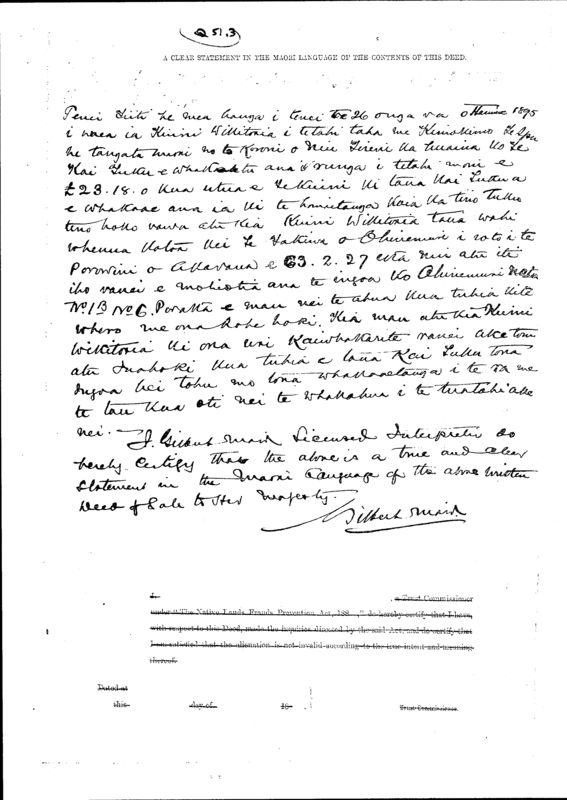 251.3
A CLEAR STATEMENT IN THE MAORI LANGUAGE OF THE CONTENTS OF THIS DEED.
Tenei Tiiti he mea hanga i tenei te 26 o nga ra o 1895
i waenga ia Kuini Wikitoria i tetahi taha me Te
he tangata maori no te o Niu Tireni ka huaina ko Te
Kai Tuku e whakaatu ana runga i tetahi moni e
£23.18.0 kua utua e Te Kuini ki taua Kai Tuku a
e whakaae ana ia ki te koia ka tino tuku
tino hoko rawa atu kia Kuini Wikitoria taua wahi
whenua katoa kei Te Takiwa o Ohinemuri i roto i te
Porowini o Akarana e 63.2.27 eka nui atu iti
iho ranei e mohiotia ana te ingoa ko Ohinemuri
No 1B No 6. Poraka e mau nei te ahua kua tuhia kite
whero me ona hoki. Kia mau atu kia Kuini
Wikitoria ki ona uri Kaiwhakarite ranei ake tonu
atu Inahoki kua tuhia e taua Kai Tuku tona
ingoa hei tohu mo tona whakaaetanga i te ra me
te tau kua oti nei te whakahua i te tuatahi ake
nei. I, Gilbert Mair Licensed Interpreter do
hereby certify that the above is a true and clear
statement in the Maori Language of the above written
Deed of Sale to Her Majesty.
Gilbert Mair
I, , a Trust Commissioner
under "The Native Lands Frauds Prevention Act, 188 ," do hereby certify that I have,
with respect to this Deed, made the inquiries directed by the said Act, and do certify that
I am satisfied that the alienation is not invalid according to the true intent and meaning
thereof.
Dated at
this day of 18
Trust Commissioner.